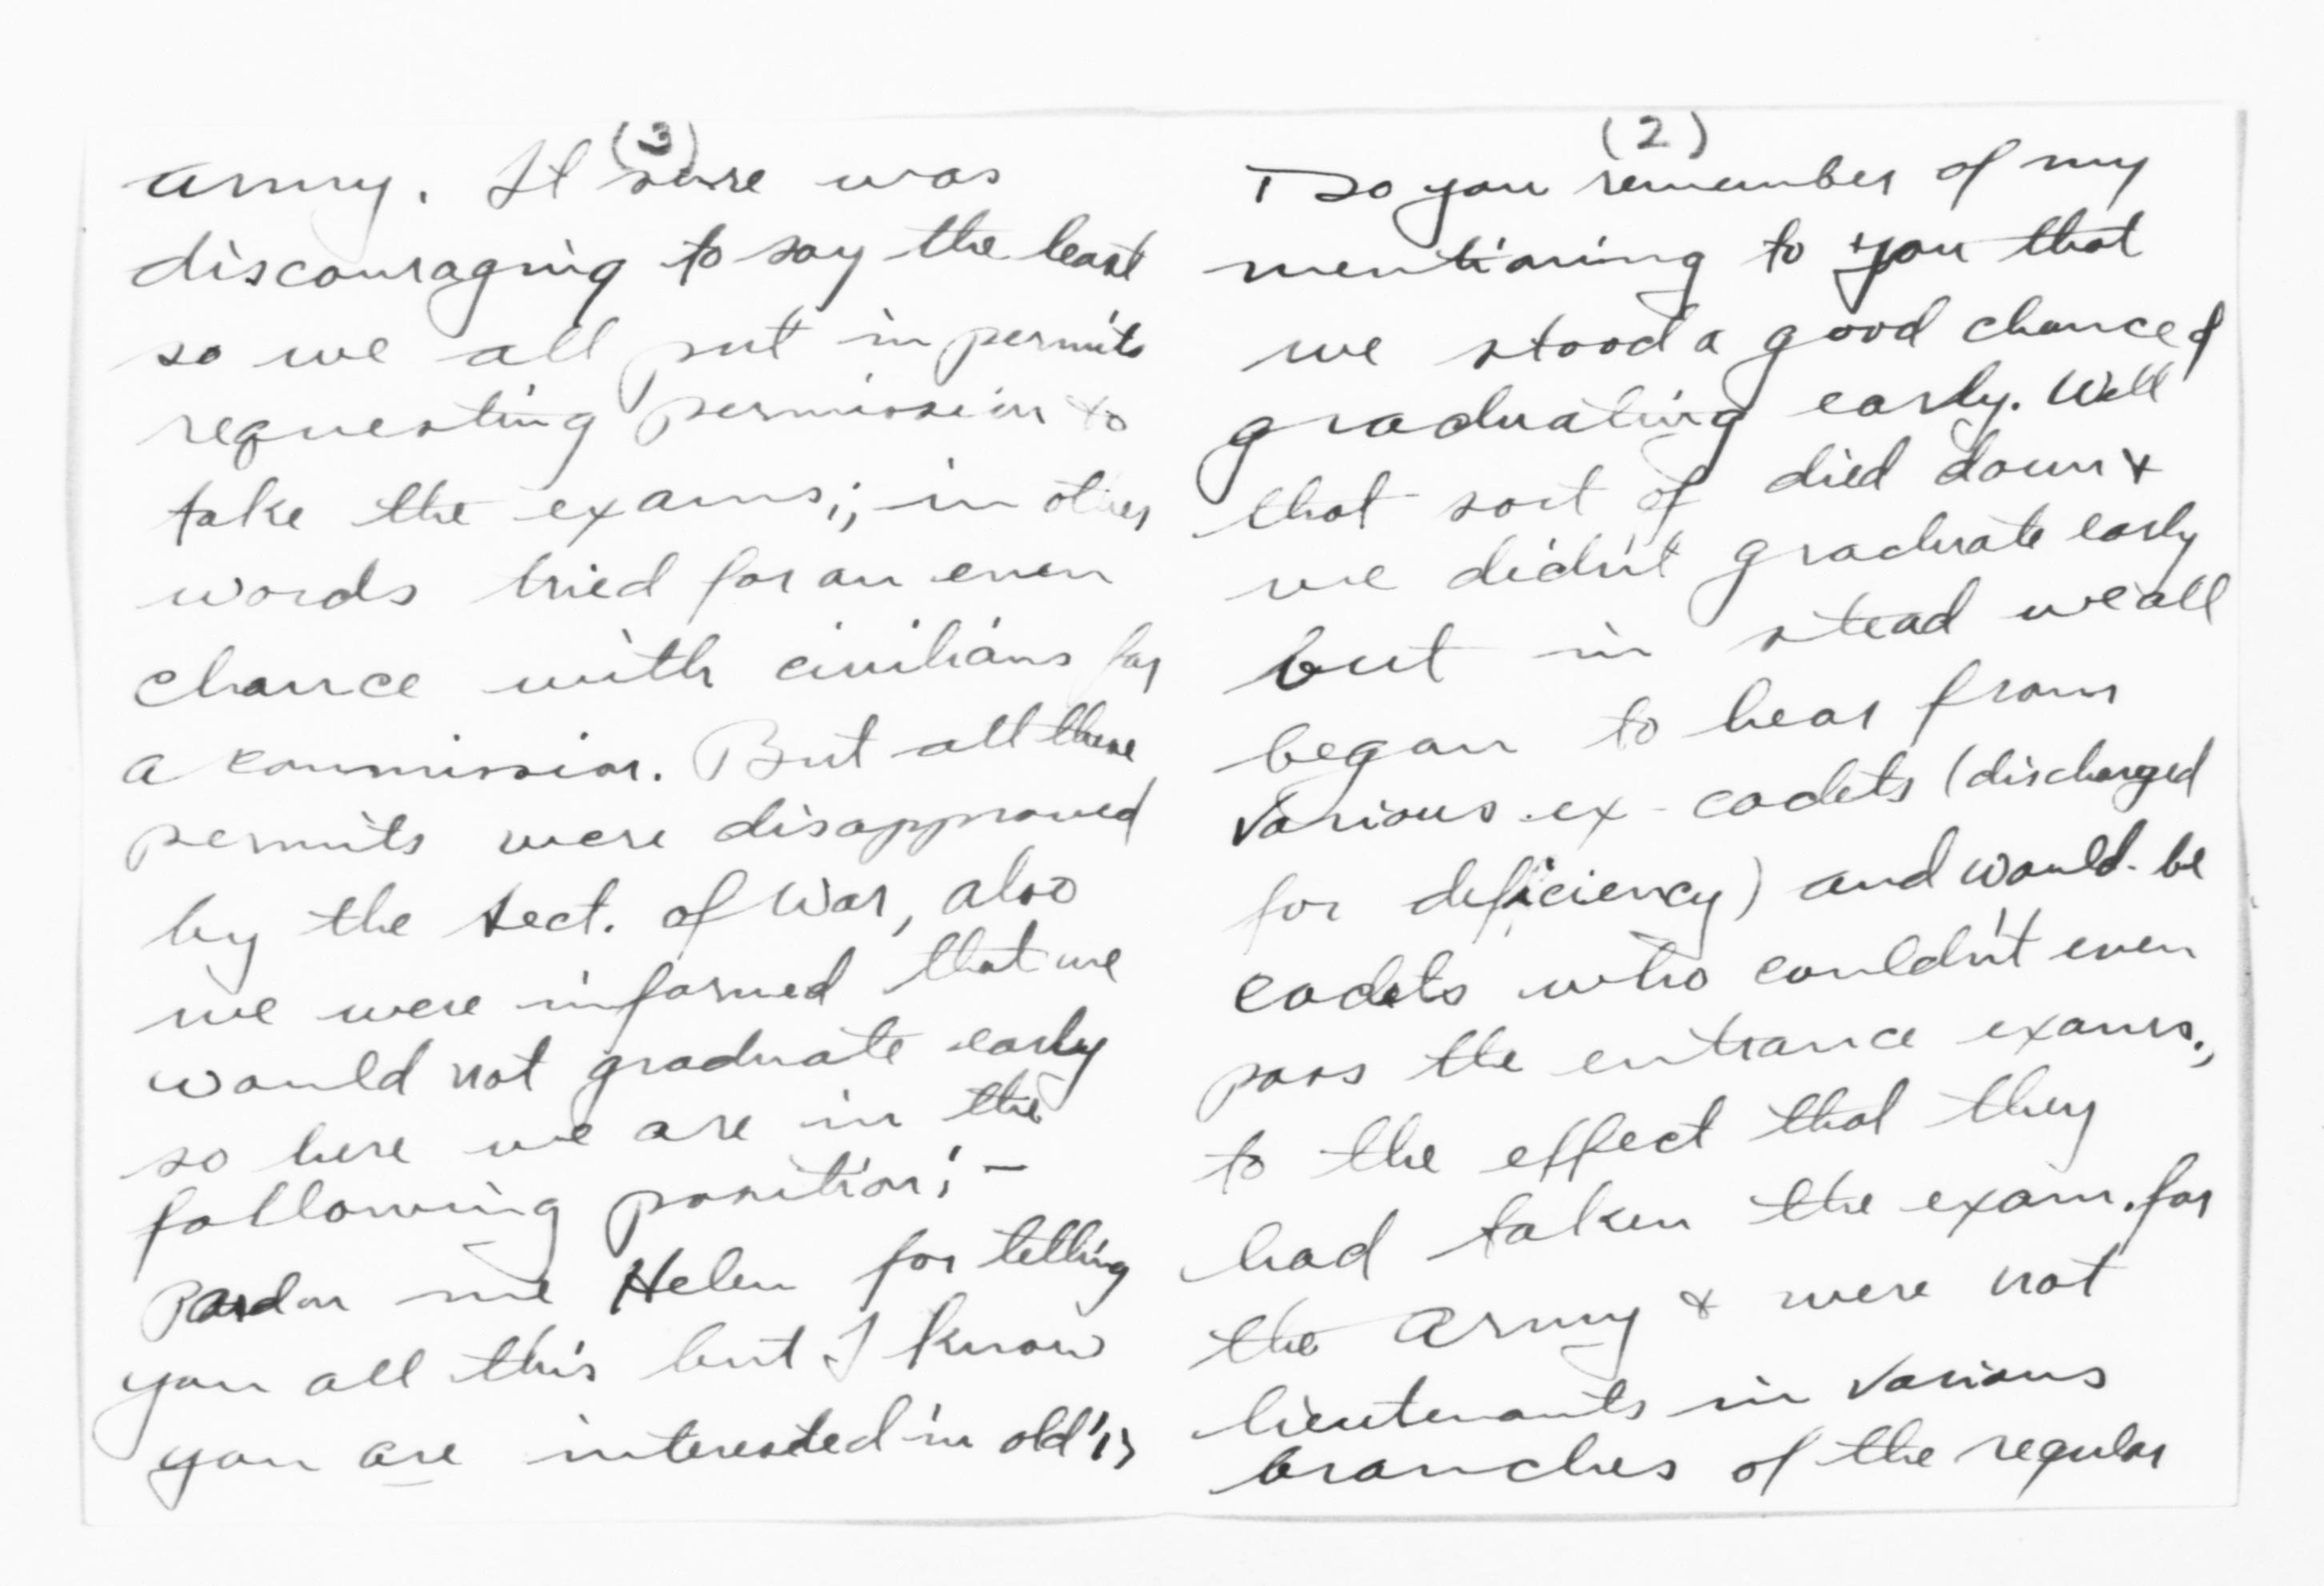 (2)
Do you remember of my
mentioning to you that
we stood a good chance of
graduating early. Well
that sort of died down &
we didn't graduate early
but in stead we all
began to hear from
various ex-cadets (discharged
for deficiency) and would-be
cadets who couldn't even
pass the entrance exams.,
to the effect that they
had taken the exam. for
the army & were not
lieutenants in various
branches of the regular
(3)
army. It sure was
discouraging to say the least
so we all put in permits
requesting permission to
take the exams; in other
words tried for an even
chance with civilians for
a commission. But all these
permits were disapproved
by the Sect. of War, also
we were informed that we
would not graduate early
so here we are in the
following position; -
Pardon me Helen for telling
you all this but I know
you are interested in old '13